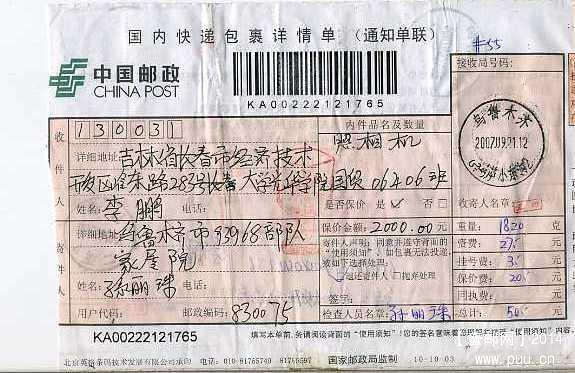 国内快递包裹详情单（通知单联）
#55
中国邮政
CHINA POST
KA00222121765
接收局号码:
乌鲁木齐
2007.09.21.12
收件人
130031
内件品名及数量
详细地址: 吉林省长春市经济技术
照相机
开发区 东路283号长春大学光华学院国贸0606班
姓名: 李鹏 电话:
是否保价 是 否
收寄人名章:
详细地址: 乌鲁木齐市93968部队
保价金额: 2000.00元
重量: 1820 克
寄件人
家属院
寄件人声明: 同意并遵守背面的
“使用须知”, 如包裹无法投递,
按如下选择处理:
退还寄件人 抛弃处理
资费: 27. 元
挂号费: 3. 元
保价费: 20. 元
姓名: 孙丽珠
签字:
回执费: 元
用户代码: 邮政编码: 830075
检查人员名章: 孙丽珠
总计: 50. 元
KA00222121765
填写本单前,务请阅读背面的“使用须知”!您的签名意味着您理解并接受“使用须知”
北京英格条码技术发展有限公司承印 电话: 010-51570749
国家邮政局监制 10-10-03
2014
www.puu.cn